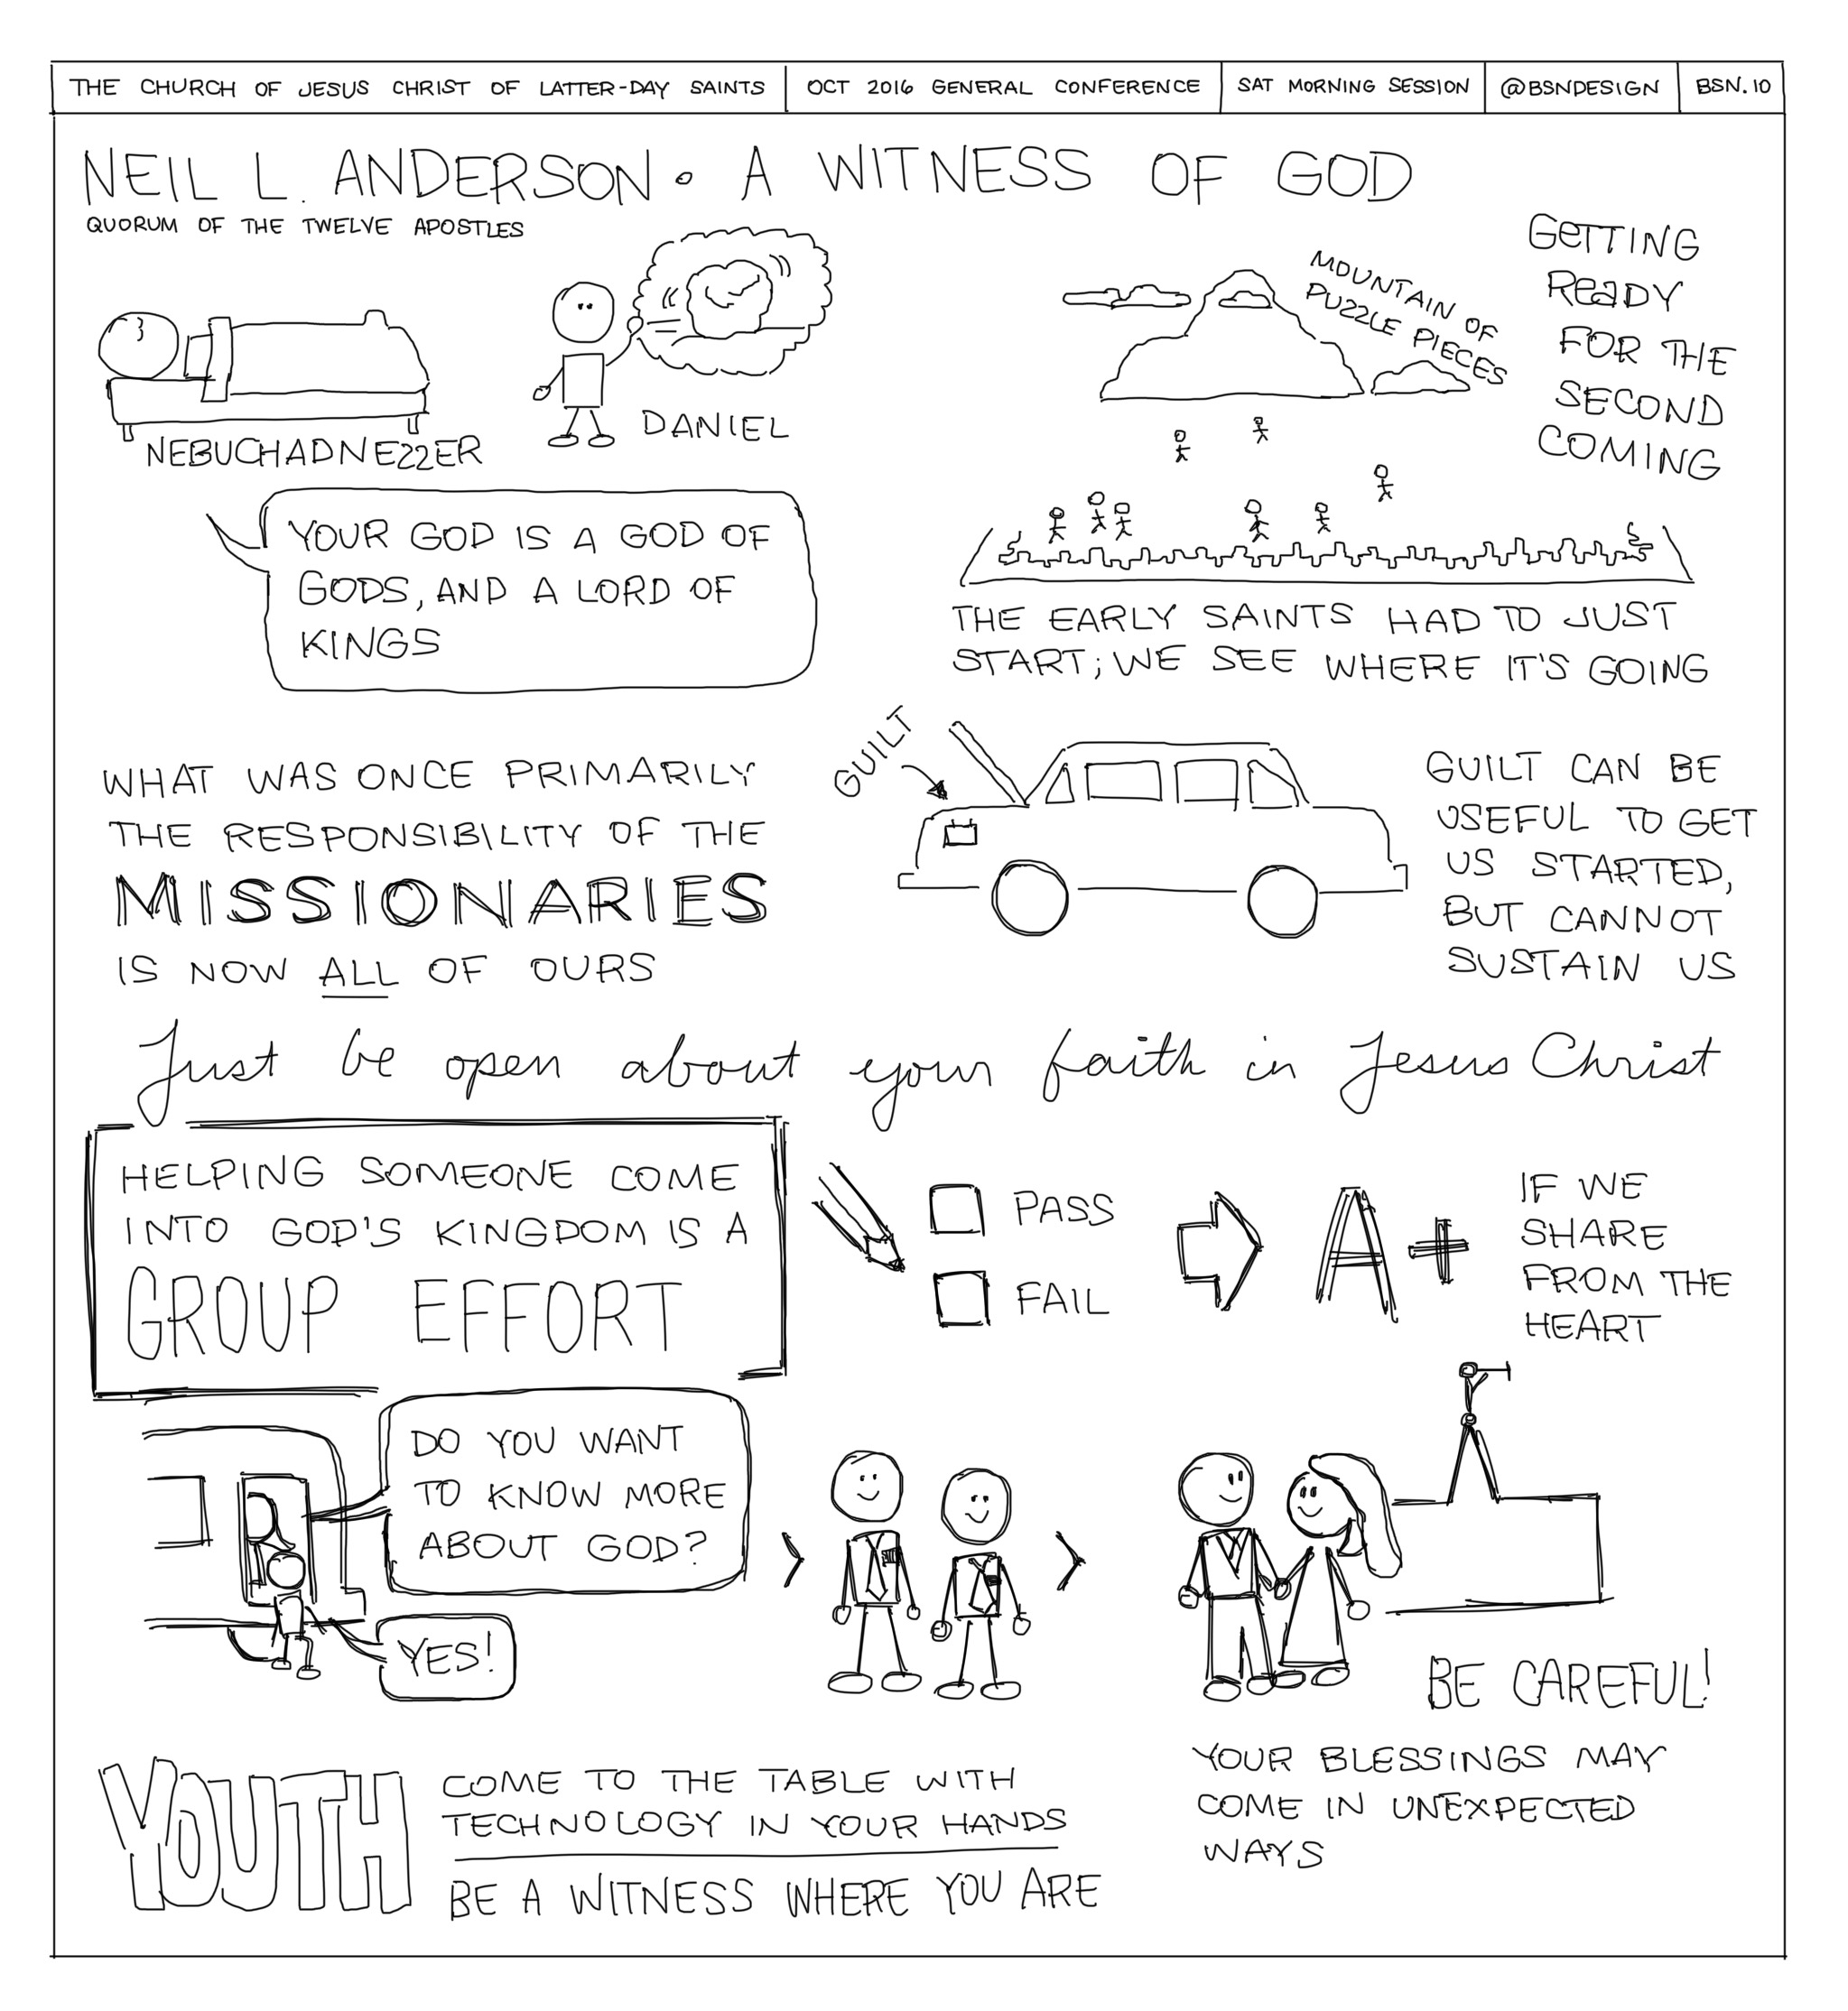 THE CHURCH OF JESUS CHRIST OF LATTER-DAY SAINTS
OCT 2016 GENERAL CONFERENCE
SAT MORNING SESSION
@BSNDESIGN
BSN.10
NEIL L. ANDERSON • A WITNESS OF GOD
QUORUM OF THE TWELVE APOSTLES
NEBUCHADNEZZER
DANIEL
YOUR GOD IS A GOD OF
GODS, AND A LORD OF
KINGS
MOUNTAIN OF
PUZZLE PIECES
GETTING
READY
FOR THE
SECOND
COMING
THE EARLY SAINTS HAD TO JUST
START; WE SEE WHERE IT'S GOING
WHAT WAS ONCE PRIMARILY
THE RESPONSIBILITY OF THE
MISSIONARIES
IS NOW ALL OF OURS
GUILT
GUILT CAN BE
USEFUL TO GET
US STARTED,
BUT CANNOT
SUSTAIN US
Just be open about your faith in Jesus Christ
HELPING SOMEONE COME
INTO GOD'S KINGDOM IS A
GROUP EFFORT
PASS
FAIL
A+
IF WE
SHARE
FROM THE
HEART
DO YOU WANT
TO KNOW MORE
ABOUT GOD?
YES!
BE CAREFUL!
YOUR BLESSINGS MAY
COME IN UNEXPECTED
WAYS
YOUTH
COME TO THE TABLE WITH
TECHNOLOGY IN YOUR HANDS
BE A WITNESS WHERE YOU ARE